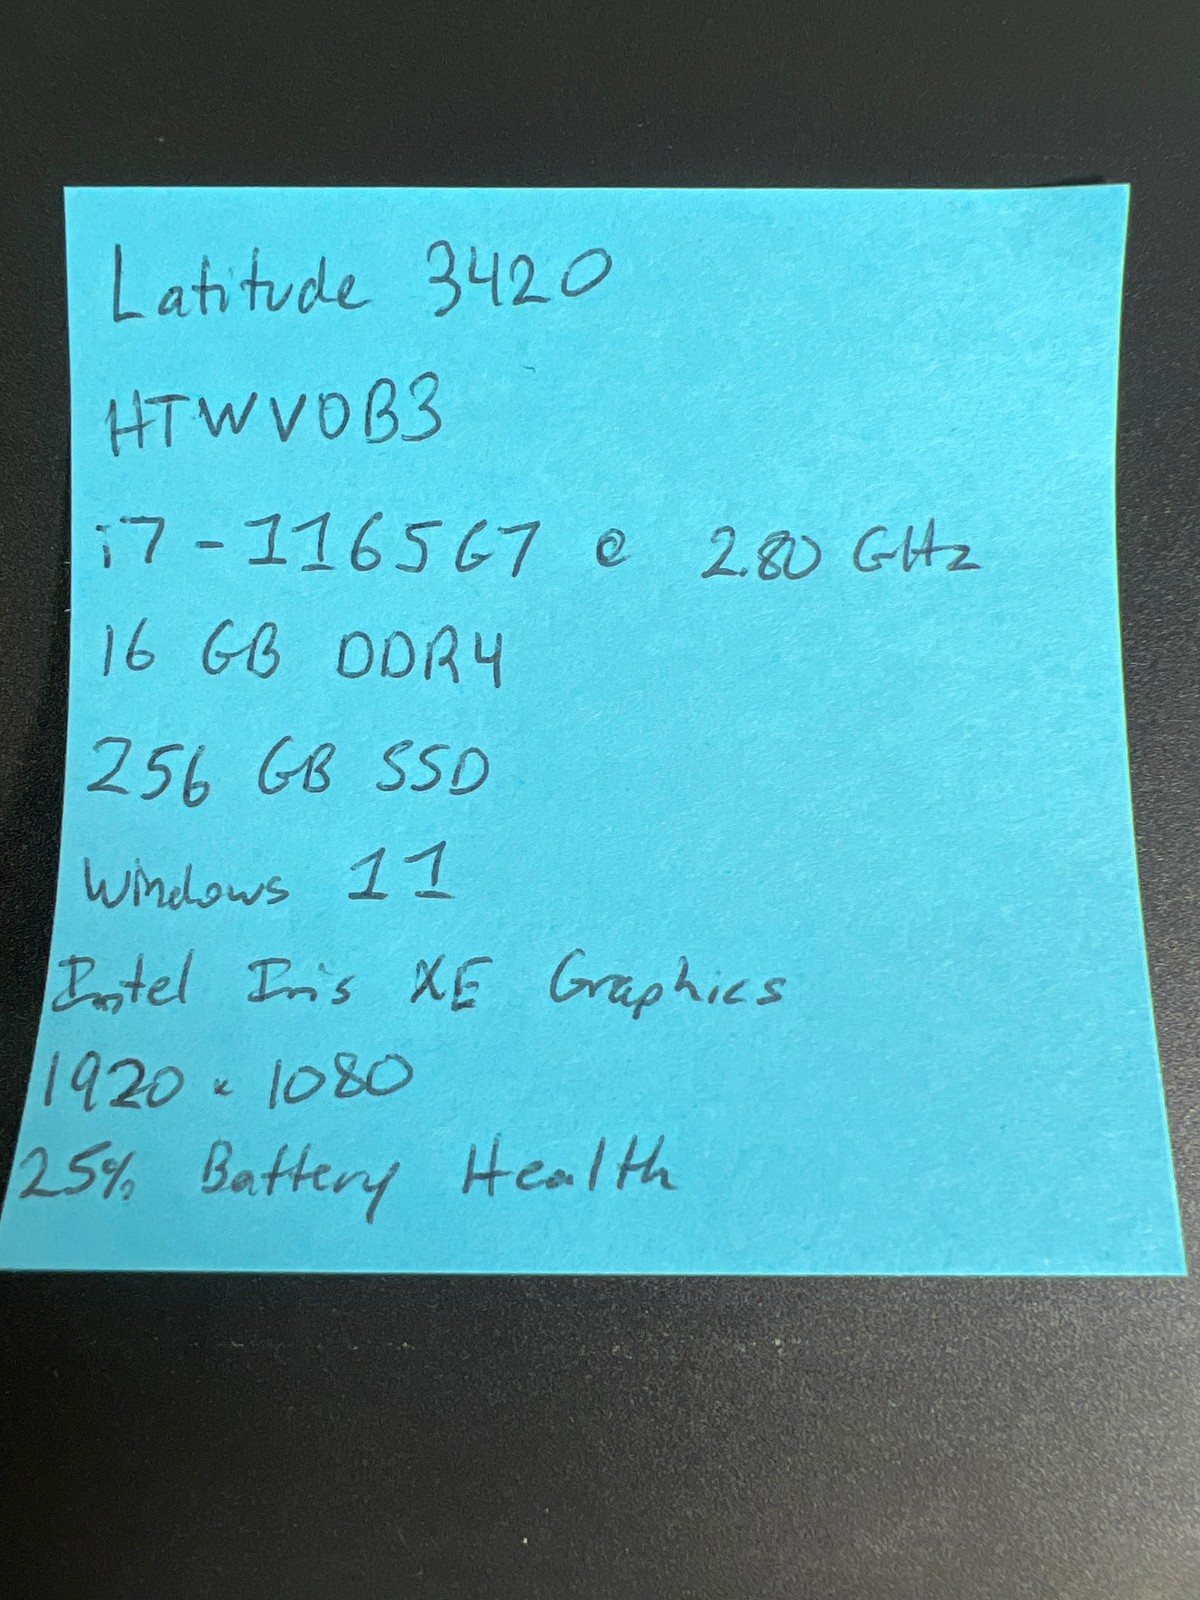 Latitude 3420
HTWV0B3
i7-1165G7 @ 2.80 GHz
16 GB DDR4
256 GB SSD
Windows 11
Intel Iris XE Graphics
1920 x 1080
25% Battery Health